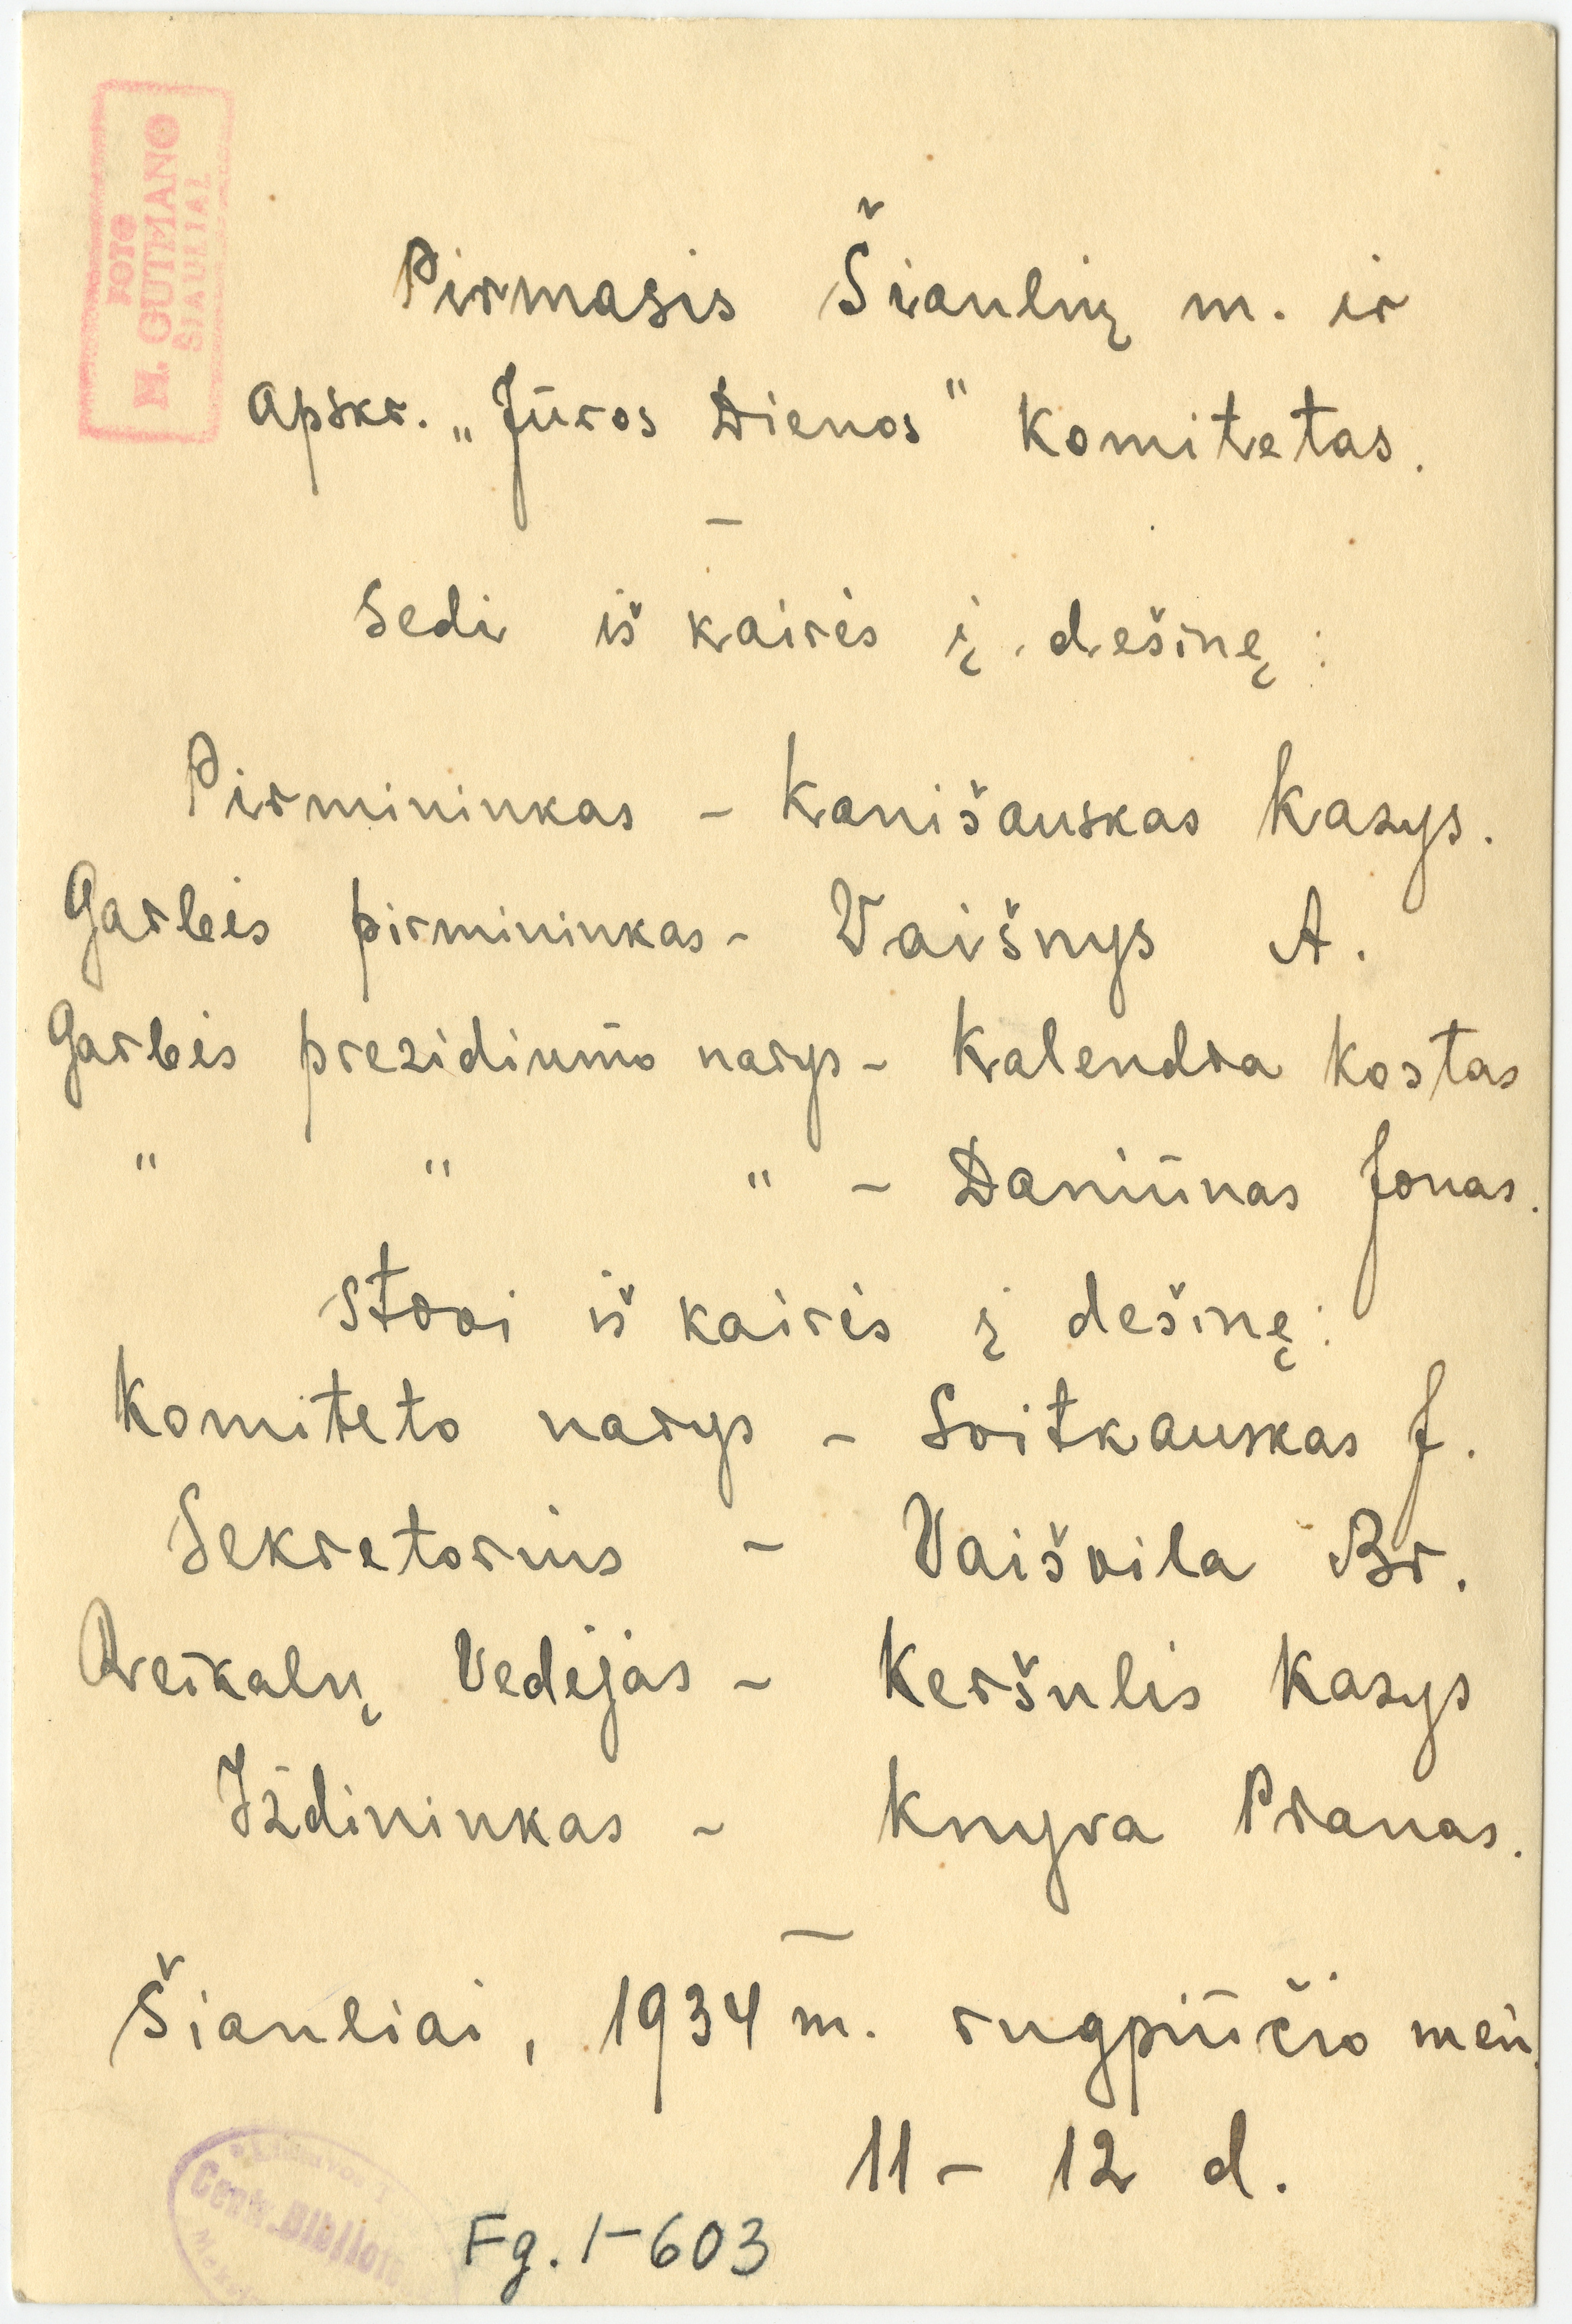 FOTO
M. GUTMANO
ŠIAULIAI
Pirmasis Šiaulių m. ir
apskr. „Jūros Dienos" Komitetas.
—
Sedi iš kairės į dešinę:
Pirmininkas – Kanišauskas Kazys.
Garbės pirmininkas – Vaišnys A.
Garbės prezidiumo narys – Kalendra Kostas
" " " – Daniūnas Jonas.
Stovi iš kairės į dešinę:
Komiteto narys – Svitkauskas J.
Sekretorius – Vaišvila Br.
Reikalų Vedėjas – Keršulis Kazys
Iždininkas – Knyva Pranas.
—
Šiauliai, 1934 m. rugpiūčio mėn.
11 – 12 d.
Centr. Bibliot
Fg. 1-603